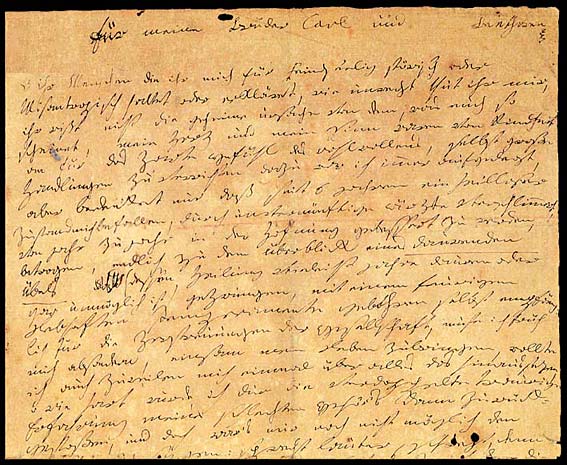 für meine Brüder Carl und Beethoven
o ihr Menschen die ihr mich für Feindseelig störisch oder
Misantropisch haltet oder erkläret, wie unrecht thut ihr mir,
ihr wißt nicht die geheime urßache von dem, was euch so
scheinet, mein Herz und mein Sinn waren von Kindheit
an für das Zarte gefühl des wohlwollens, selbst große
Handlungen zu verrichten dazu war ich immer aufgelegt,
aber bedenket nur daß seit 6 jahren ein heilloser
Zustand mich befallen, durch unvernünftige ärzte verschlimmert,
von jahr zu jahr in der Hofnung gebessert zu werden,
betrogen, endlich zu dem überblick eines daurenden
Übels dessen Heilung vieleicht jahre dauren oder
gar unmöglich ist, gezwungen, mit einem feurigen
Lebhaften Temperamente gebohren selbst empfäng-
lich für die Zerstreuungen der Gesellschaft, muste ich früh
mich absondern, einsam mein Leben zubringen, wollte
ich auch zuweilen mich einmal über alles das hinaussezen,
o wie hart wurde ich dur die verdoppelte traurige
Erfahrung meines schlechten Gehör's dann zurück-
gestoßen, und doch war's mir noch nicht möglich den
sprecht lauter, schreyt, denn